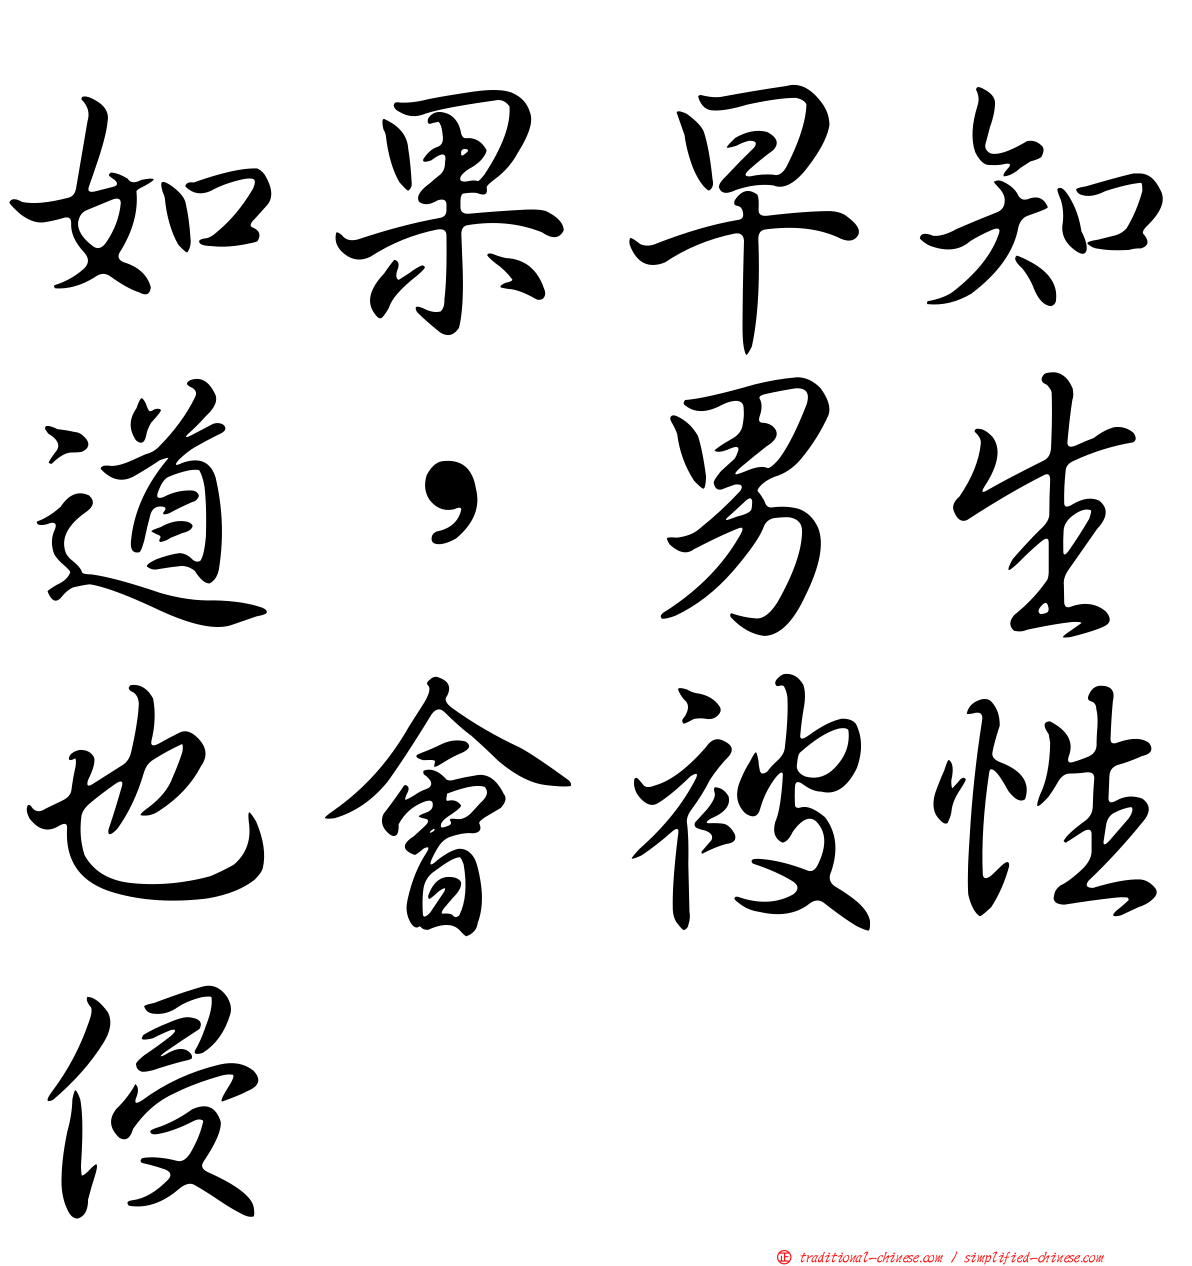 如果早知
道，男生
也會被性
侵
正 traditional-chinese.com / simplified-chinese.com